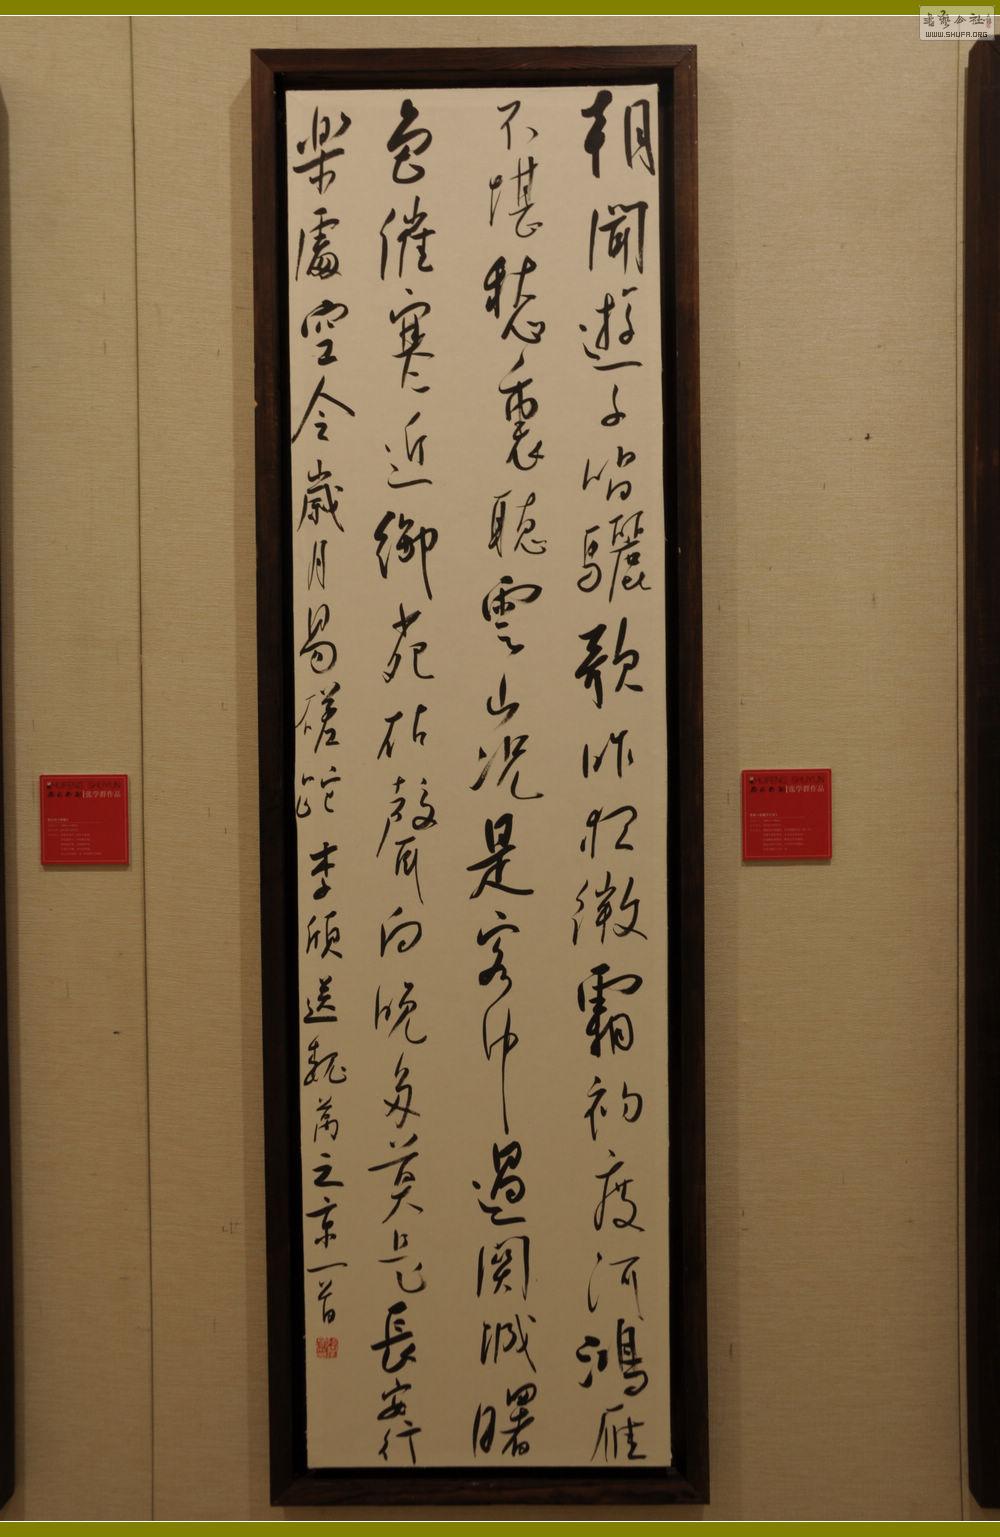 朝聞遊子唱驪歌昨夜微霜初度河鴻雁
不堪愁裏聽雲山況是客中過關城曙
色催寒近御苑砧聲向晚多莫是長安行
樂處空令歲月易蹉跎李頎送魏萬之京一首
张学群作品
张学群作品
WWW.SHUFA.ORG